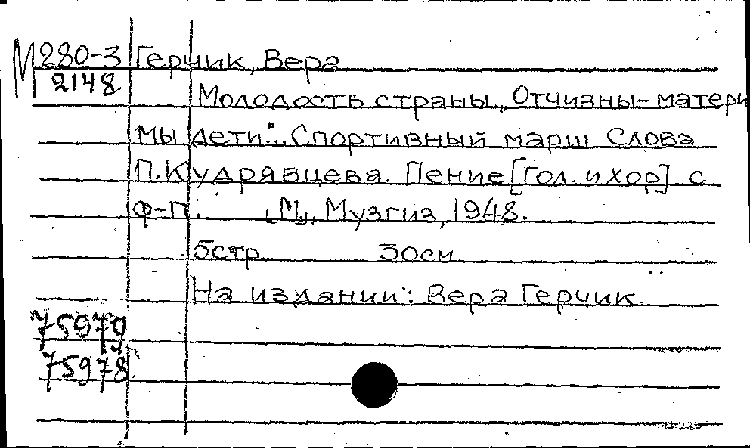 М 280-3 Герчик, Вера
2148
Молодость страны. „Отчизны-матери
мы дети“... Спортивный марш Слова
П. Кудрявцева. Пение [гол. и хор] с
ф-п. М., Музгиз, 1948.
5стр 30см
На издании: Вера Герчик
75979
75978